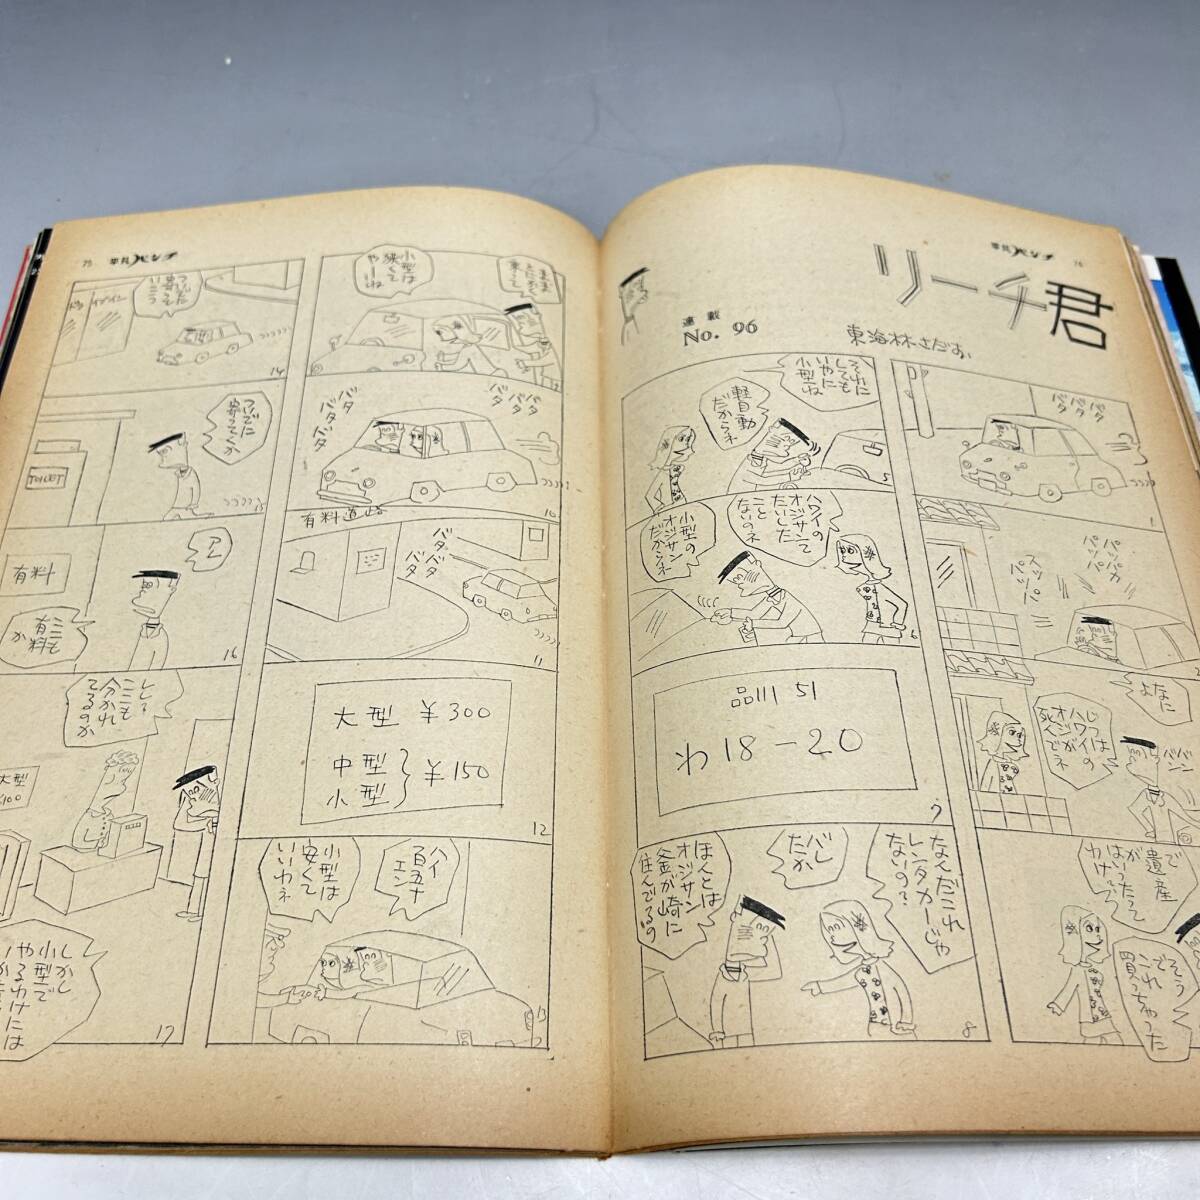 平凡パンチ
76
リーチ君
連載
No. 96
東海林さだお
バタ
バタ
バタ
1
パッパカ
パッパ
ズッパ
パッパー
2
なに
よ
じつは
ハワイの
オジが
死ん
でネ
で
遺産
が
はいったって
わけ
そう
で
これ
買っちゃった
それに
しても
いやに
小型ね
軽自動
だからネ
5
ハワイの
オジサンて
たいした
こと
ないのネ
小型の
オジサン
だからネ
6
品川 51
わ 18-20
7
なんだこれ
レンタカーじゃ
ないの?
バレ
たか
ほんとは
オジサン
釜が崎に
住んでるの
8
75
平凡パンチ
小型は
狭くて
や
ーね
バタ
バタ
バタ
バタ
バタ
10
有料道路
バタ
バタ
バタ
11
大型 ¥300
中型
小型 } ¥150
12
ハイ
百五十
エン
小型は
安くて
いいわネ
13
ドライブイン
14
ついでに
寄ってくか
TOILET
15
有料
ここも
有料
か
16
ここも
分かれ
てるのか
大型
¥100
しかし
小型で
やるわけには
17